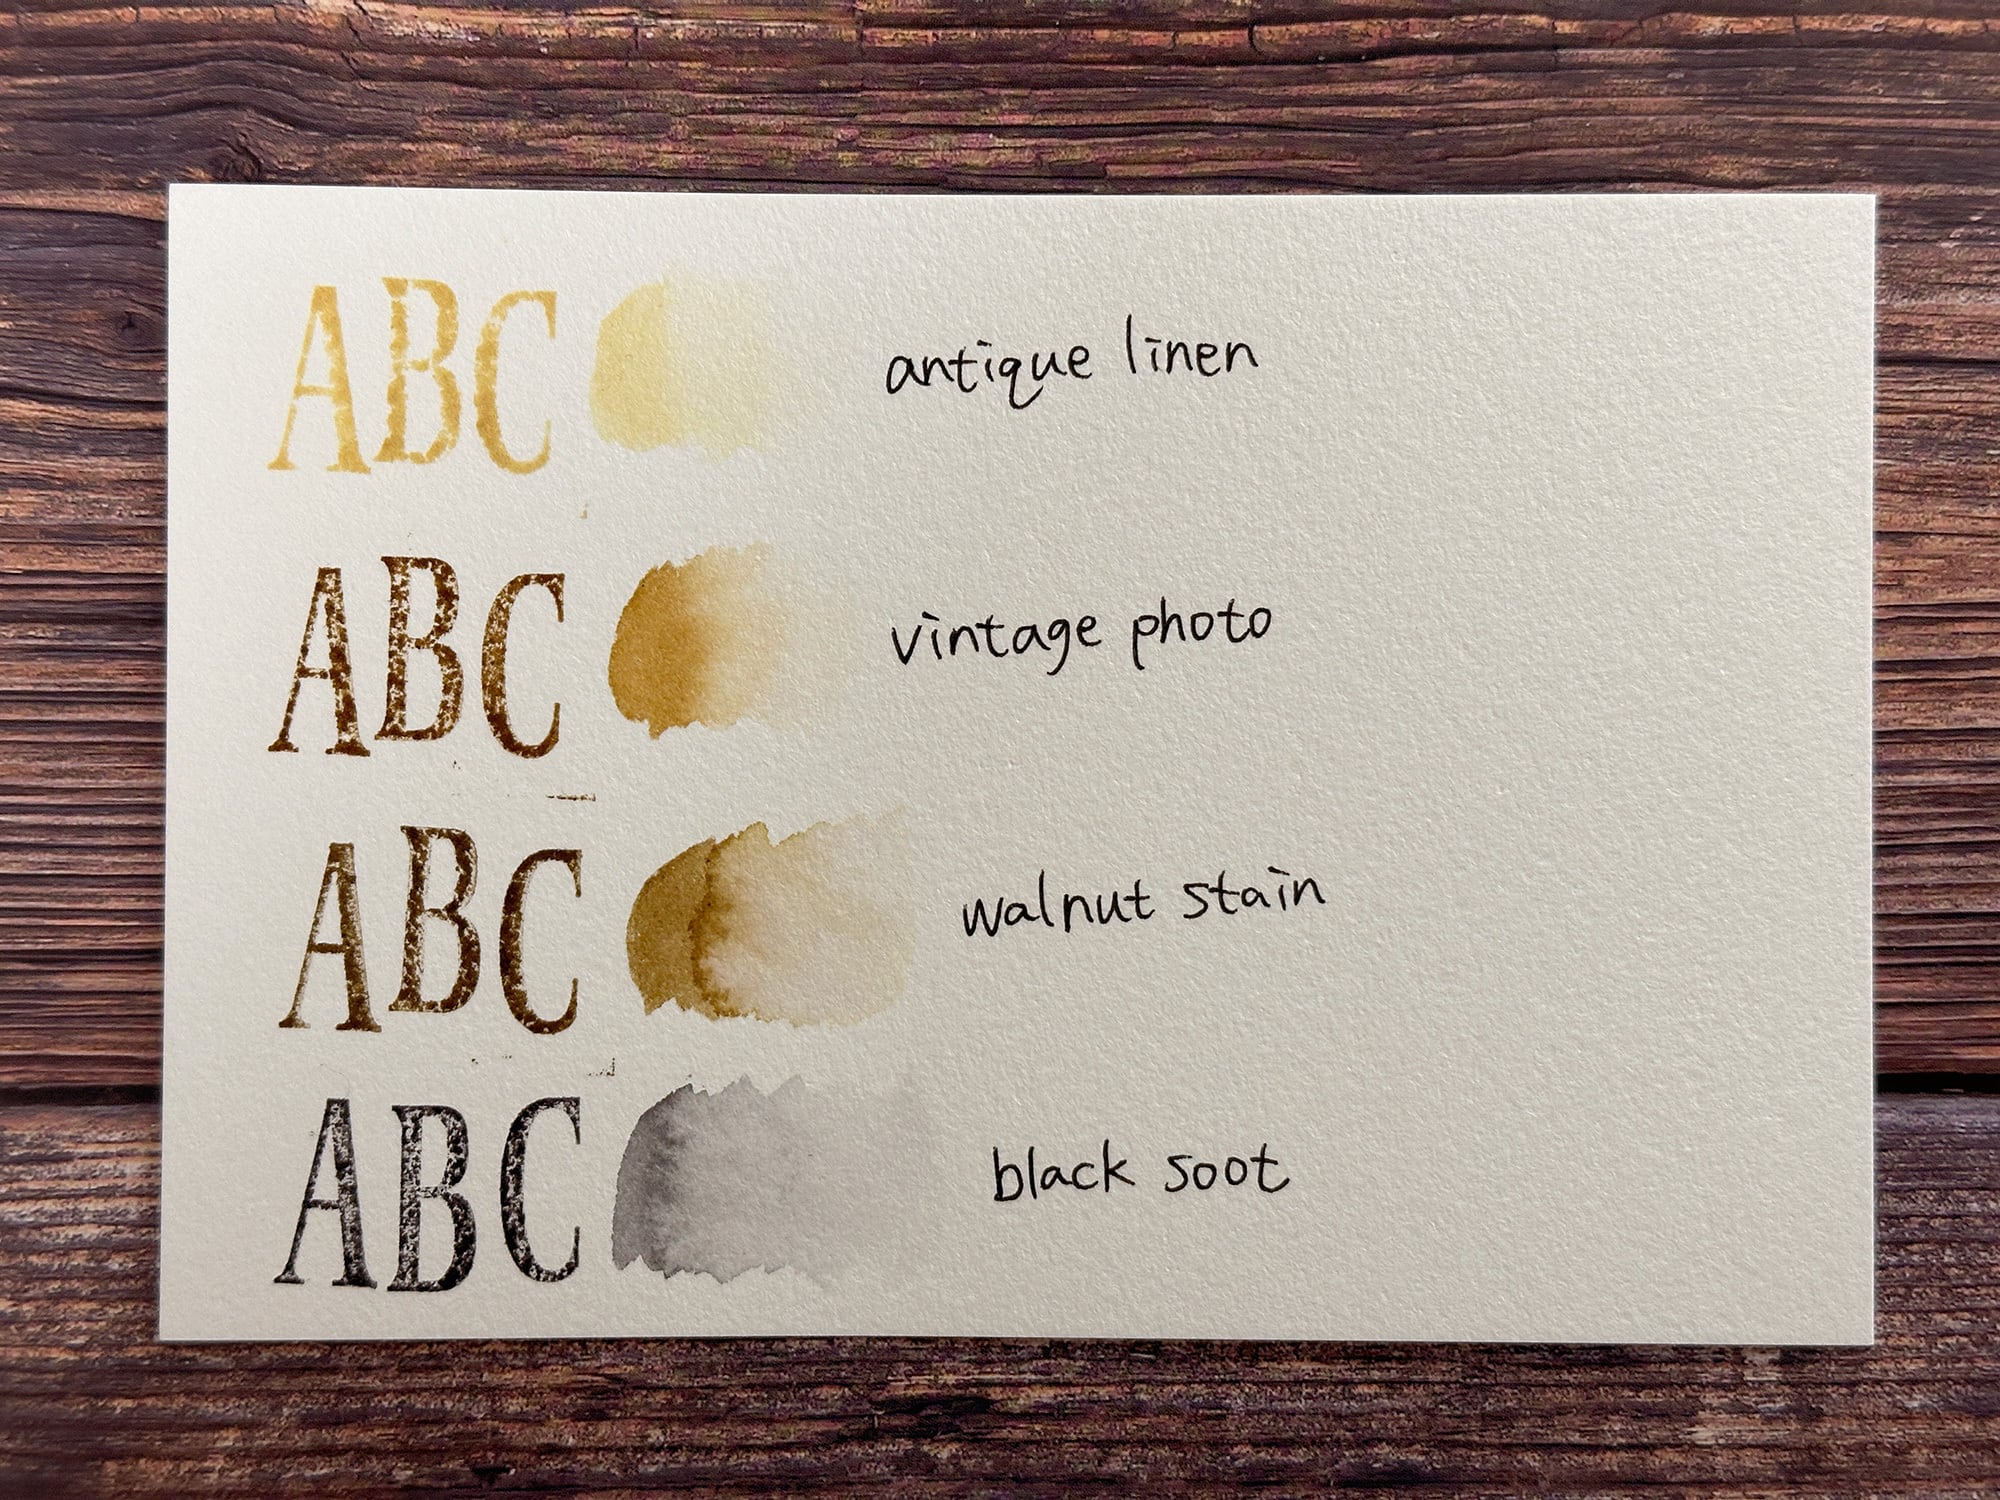 ABC antique linen
ABC vintage photo
ABC walnut stain
ABC black soot